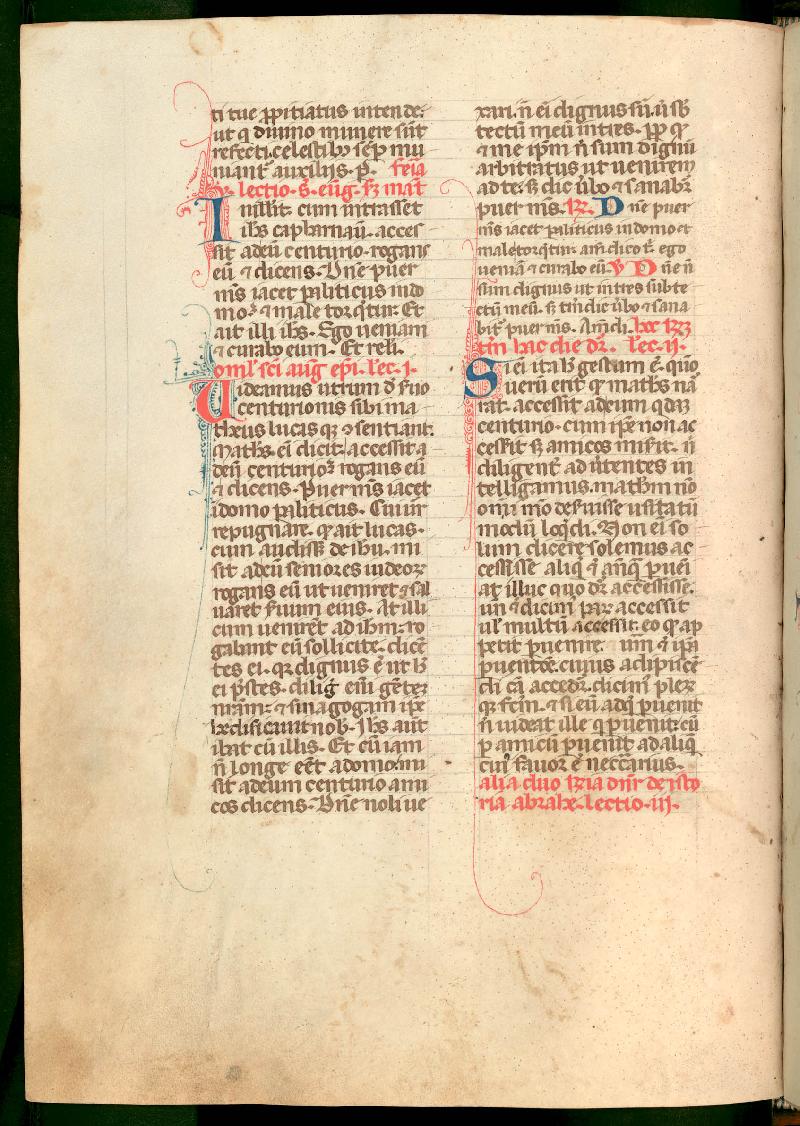 ti tue ꝓpitiatus intende:
ut q diuino munere sūt
refecti. celestibꝫ sēp mu
niant᷑ auxilijs. ꝑ. feīa
lectio. s. eūg. ẜꝫ mat̄
In illıt̄. cum intrasset
ih̄s capharnaū. acces
sit adeū centurio. rogans
eū ⁊ dicens. Dn̄e puer
m̄s iacet paliticus indo
mo. ⁊ male torq̄tur. Et
ait illi ih̄s. Ego ueniam
⁊ curabo eum. Et reli.
oml̄. sc̄i aug ep̄i. lec. i.
Uideamus utrum d̄ s̄uo
centurionis sibi ma
theus lucas qꝫ ꝯsentiant.
Math̄s. ei dicit. accessit a
deū centurioꝛ rogans eū
⁊ dicens. Puer m̄s iacet
īdomo paliticus. Cui uī
repugnare. ꝙ ait lucas.
cum audissꝫ de ih̄u. mi
sit adeū seniores iudeoꝝ
rogans eū ut ueniret ⁊ sal
uaret s̄uum eius. At illi
cum ueniret̄ ad ih̄m. ro
gabant eū sollicite. dicē
tes ei. qꝛ dignus ē ut h̄
ei p̄stes. diliḡ eni gēteꝫ
nr̄am. ⁊ sinagogam ip̄e
hedificauit nob̄. Ih̄s aūt
ibat cū illis. Et cū iam
n̄ longe eēt adomo. mi
sit adeum centurio ami
cos dicens. Dn̄e noli ue
xari. n̄ ei dignus sū. ū sb̄
tectū meū intres. ꝓꝑ ꝙ
⁊ me ip̄m n̄ sum dignū
arbitratus ut uenirem
ad te. ẜꝫ dic ūbo ⁊ sanabr̄
puer m̄s. ꝶ. Dn̄e puer
m̄s iacet paliticus indomo ⁊
male torq̄tur. am̄ dico t̄. ego
ueniā ⁊ curabo eū. ꝟ Dn̄e n̄
sum dignus ut intres sub te
ctū meū. ẜꝫ tm̄ dic ūbo ⁊ sana
bit᷑ puer m̄s. Am̄ di. hec ꝶ
tm̄ hac die dr̄. Lec. ii.
Si ei ita h̄ gestum ē. quo
uerū erit ꝙ math̄s na
rat. accessit adeum qdaꝫ
centurio. cum ip̄e non ac
cessit ẜꝫ amicos misit. n̄
diligent̄ ad ūtentes in
telligamus. math̄m nō
omī mo deseruisse usitatū
modū loq̄di. Non ei so
lum dicere solemus ac
cessisse aliq̄ ⁊ an̄q̄ puei
at illuc quo dr̄ accessisse.
un̄ ⁊ dicim̄ paꝝ accessit
ul̄ multū accessit. eo ꝙ ap
petit puenire. um̄ ⁊ ip̄a
puentōe. cuius adipiscē
di cā acced᷑. dicim̄ pleꝝ
qꝫ fc̄m. ⁊ si eū adq̄ puenit
n̄ uideat ille q puenit. cū
ꝑ amicū puenit ad aliq̄
cuī fauor ē nec̄carius.
alia duo ꝶia dn̄r de ysto
ria abrahe. Lectio. iii.